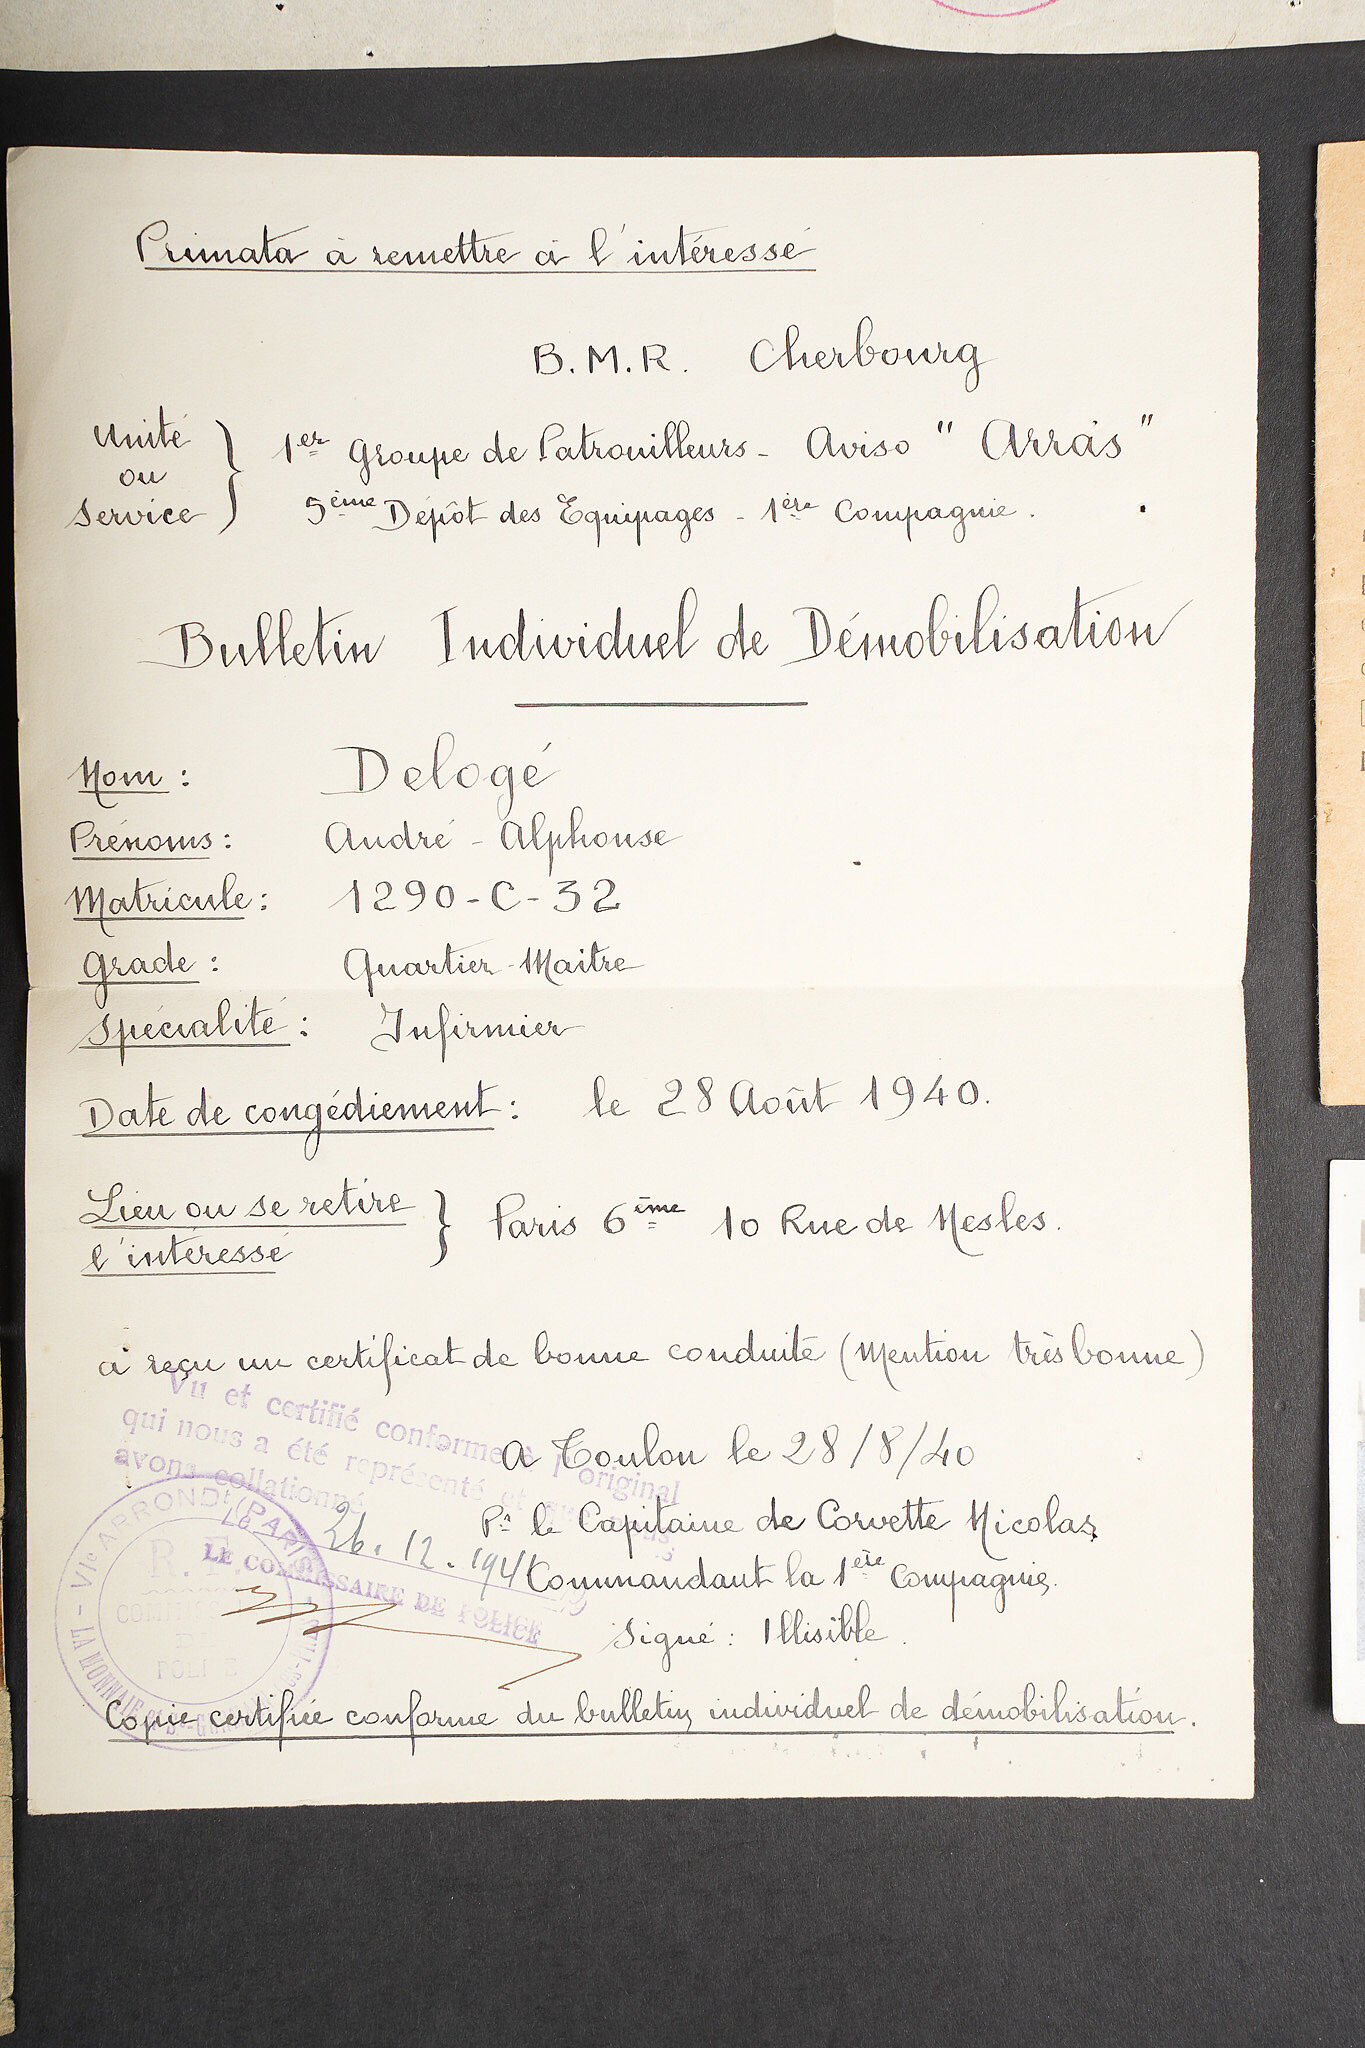 Primata à remettre à l'intéressé
B.M.R. Cherbourg
Unité
ou
Service
1er Groupe de Patrouilleurs - Aviso "Arras"
5ème Dépôt des Equipages - 1ère Compagnie.
Bulletin Individuel de Démobilisation
Nom : Delogé
Prénoms : André - Alphonse
Matricule : 1290-C-32
Grade : Quartier-Maitre
Spécialité : Infirmier
Date de congédiement : le 28 Août 1940.
Lieu ou se retire
l'intéressé
Paris 6ème 10 Rue de Nesles.
a reçu un certificat de bonne conduite (Mention très bonne)
Vu et certifié conforme à l'original
qui nous a été représenté et que nous
avons collationné
A Toulon le 28/8/40
Pr le Capitaine de Corvette Nicolas
Commandant la 1ère Compagnie.
Signé : Illisible.
Le 26.12.194
LE COMMISSAIRE DE POLICE
VIe ARRONDt (PARIS)
LA MONNAIE
R.F.
COMMISSAIRE
DE
POLICE
Copie certifiée conforme du bulletin individuel de démobilisation.